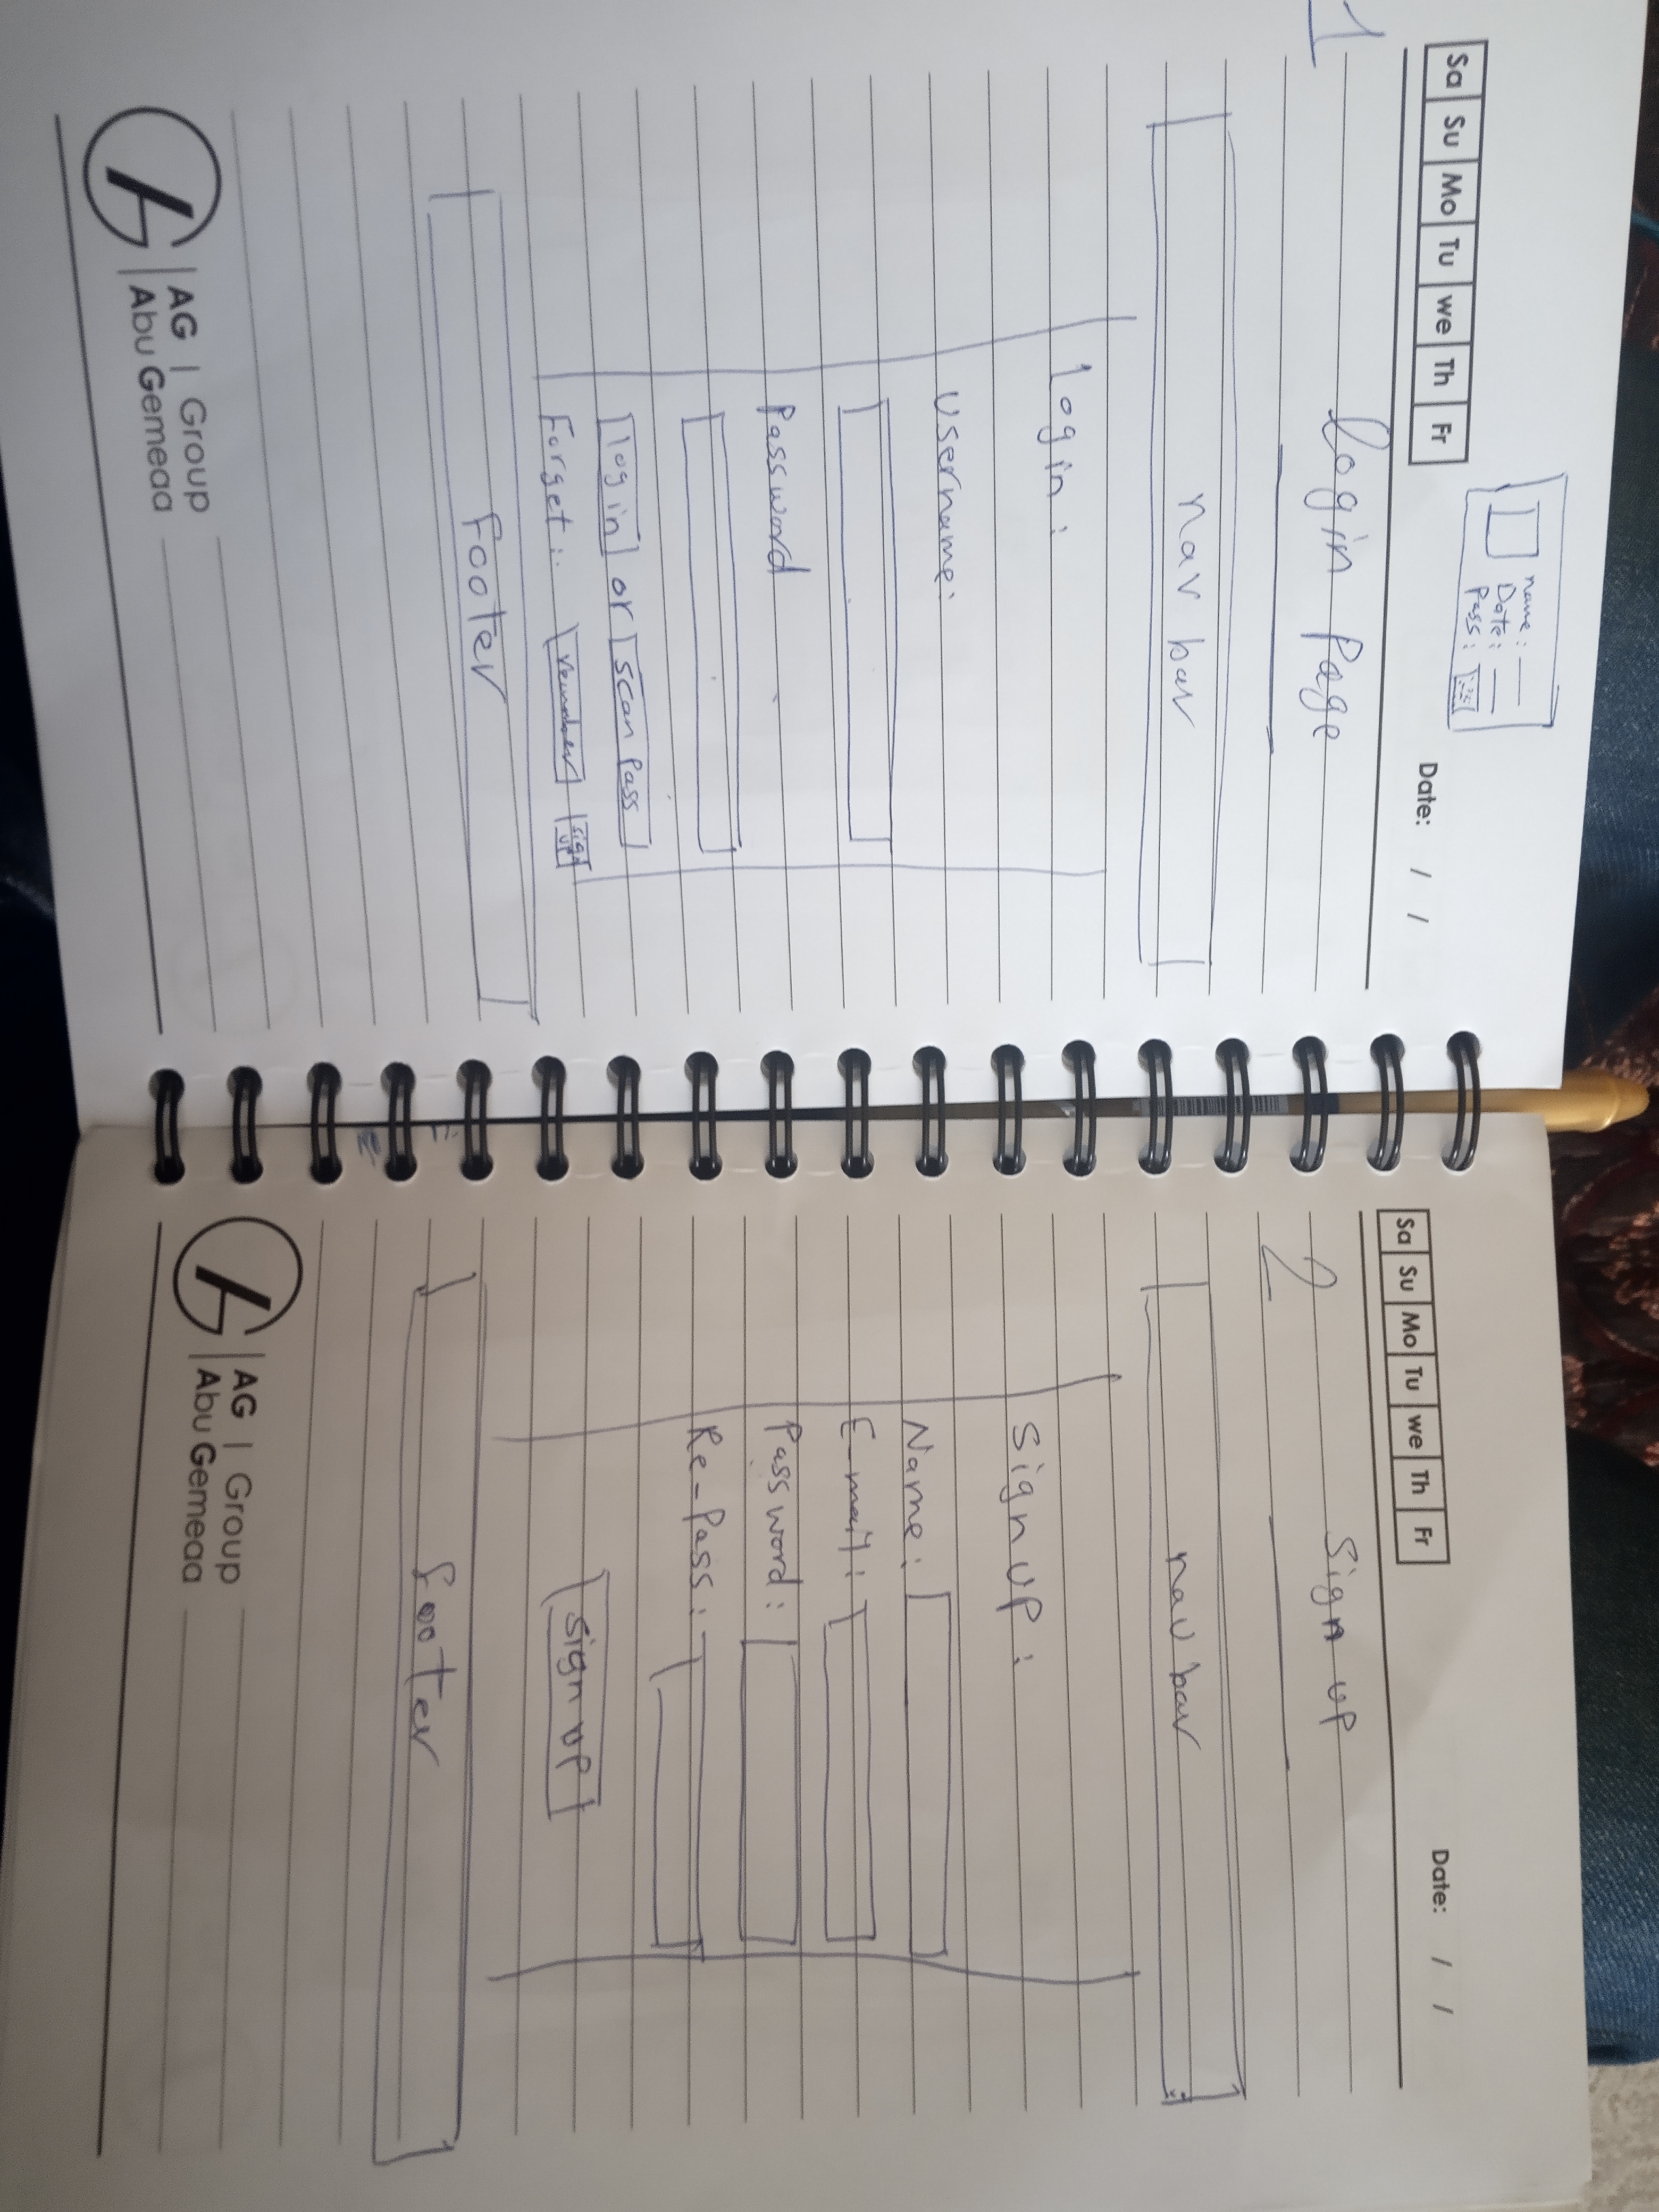 1
Sa Su Mo Tu we Th Fr
name:
Date:
Pass:
Date: / /
Login Page
nav bar
login:
username:
Password
login or scan Pass
Forget: sign up
Footer
AG | Group
Abu Gemeaa
Sa Su Mo Tu we Th Fr
Date: / /
2
Sign up
nav bar
Sign up:
Name:
E-mail:
Password:
Re-Pass:
Sign up
Footer
AG | Group
Abu Gemeaa